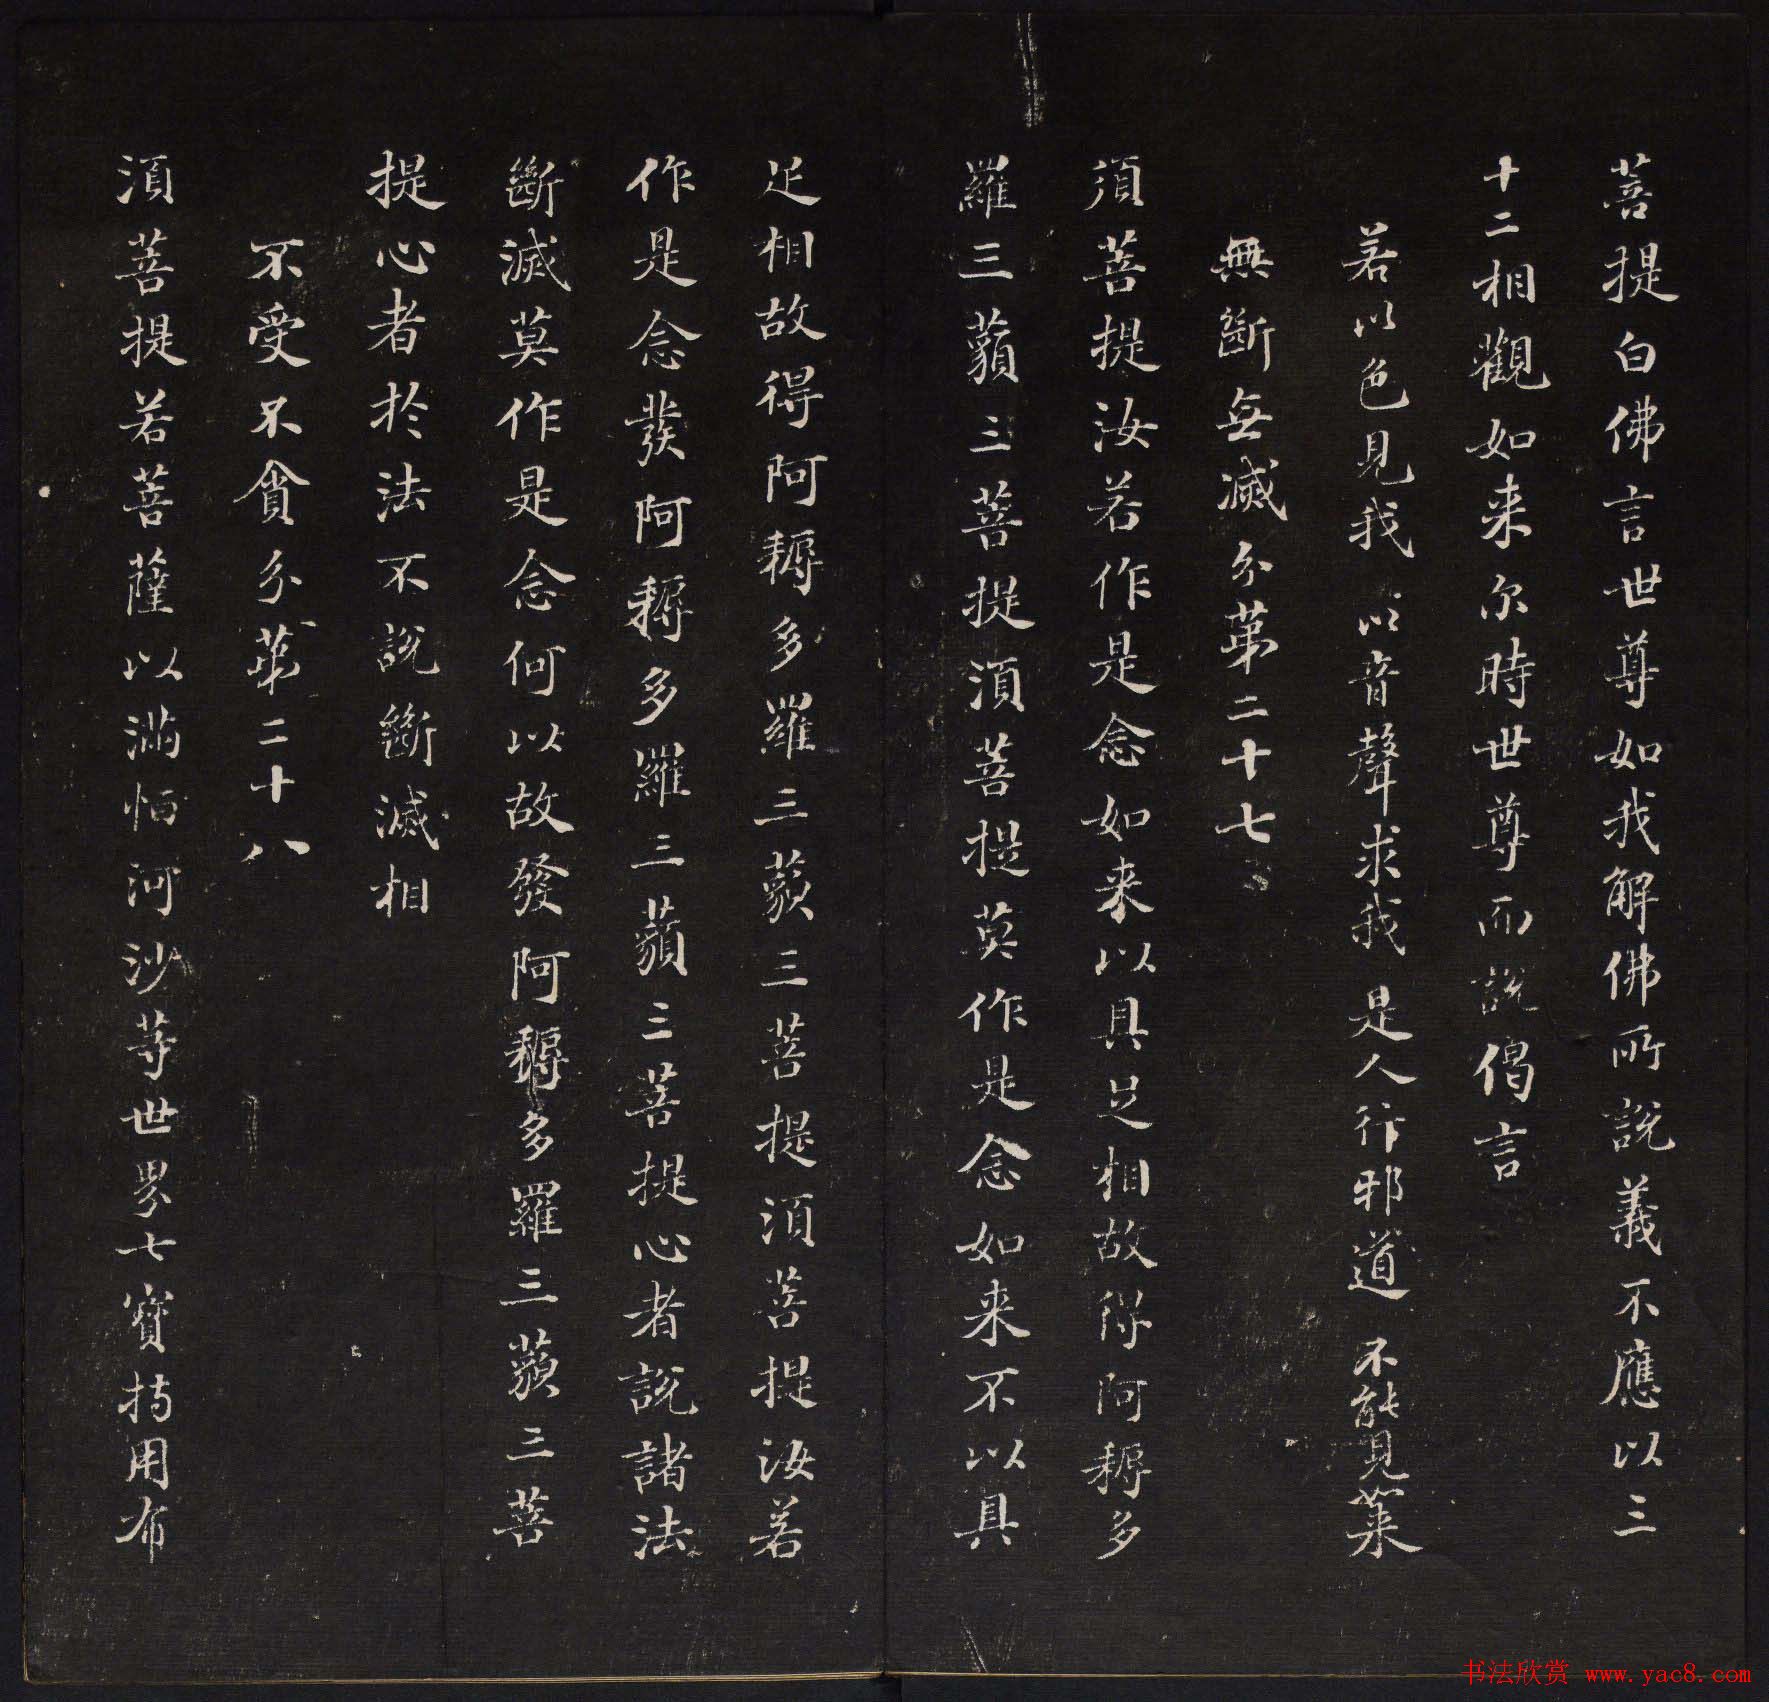 菩提白佛言世尊如我解佛所說義不應以三
十二相觀如来尔時世尊而說偈言
若以色見我 以音聲求我 是人行邪道 不能見如来
無斷無滅分第二十七
須菩提汝若作是念如来以具足相故得阿耨多
羅三藐三菩提須菩提莫作是念如来不以具
足相故得阿耨多羅三藐三菩提須菩提汝若
作是念發阿耨多羅三藐三菩提心者說諸法
斷滅莫作是念何以故發阿耨多羅三藐三菩
提心者於法不說斷滅相
不受不貪分第二十八
須菩提若菩薩以滿恒河沙等世界七寶持用布
书法欣赏 www.yac8.com